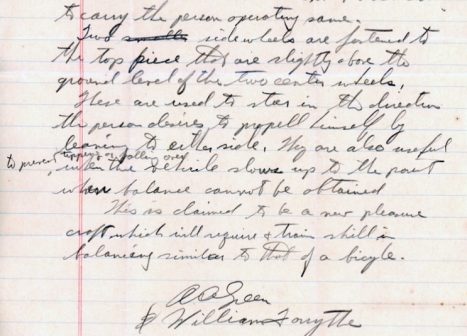 to carry the person operating same.
Two side wheels are fastened to
the top piece that are slightly above the
ground level of the two center wheels.
These are used to stear in the direction
the person desires to propell himself by
leaning to either side. They are also useful
to prevent tipping or falling over
when the vehicle slows up to the point
when balance cannot be obtained
This is claimed to be a new pleasure
craft which will require & train skill in
balancing similar to that of a bicycle.
A A Green
& William Forsythe